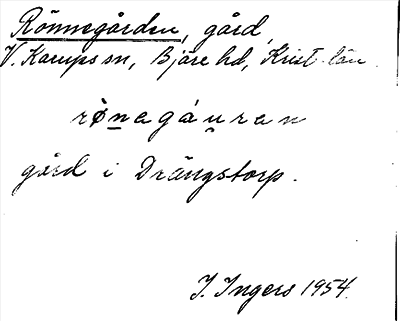 Rönnegården, gård,
V. Karups sn, Bjäre hd, Krist. län.
rønagáu̯ran
gård i Drängstorp.
I. Ingers 1954.